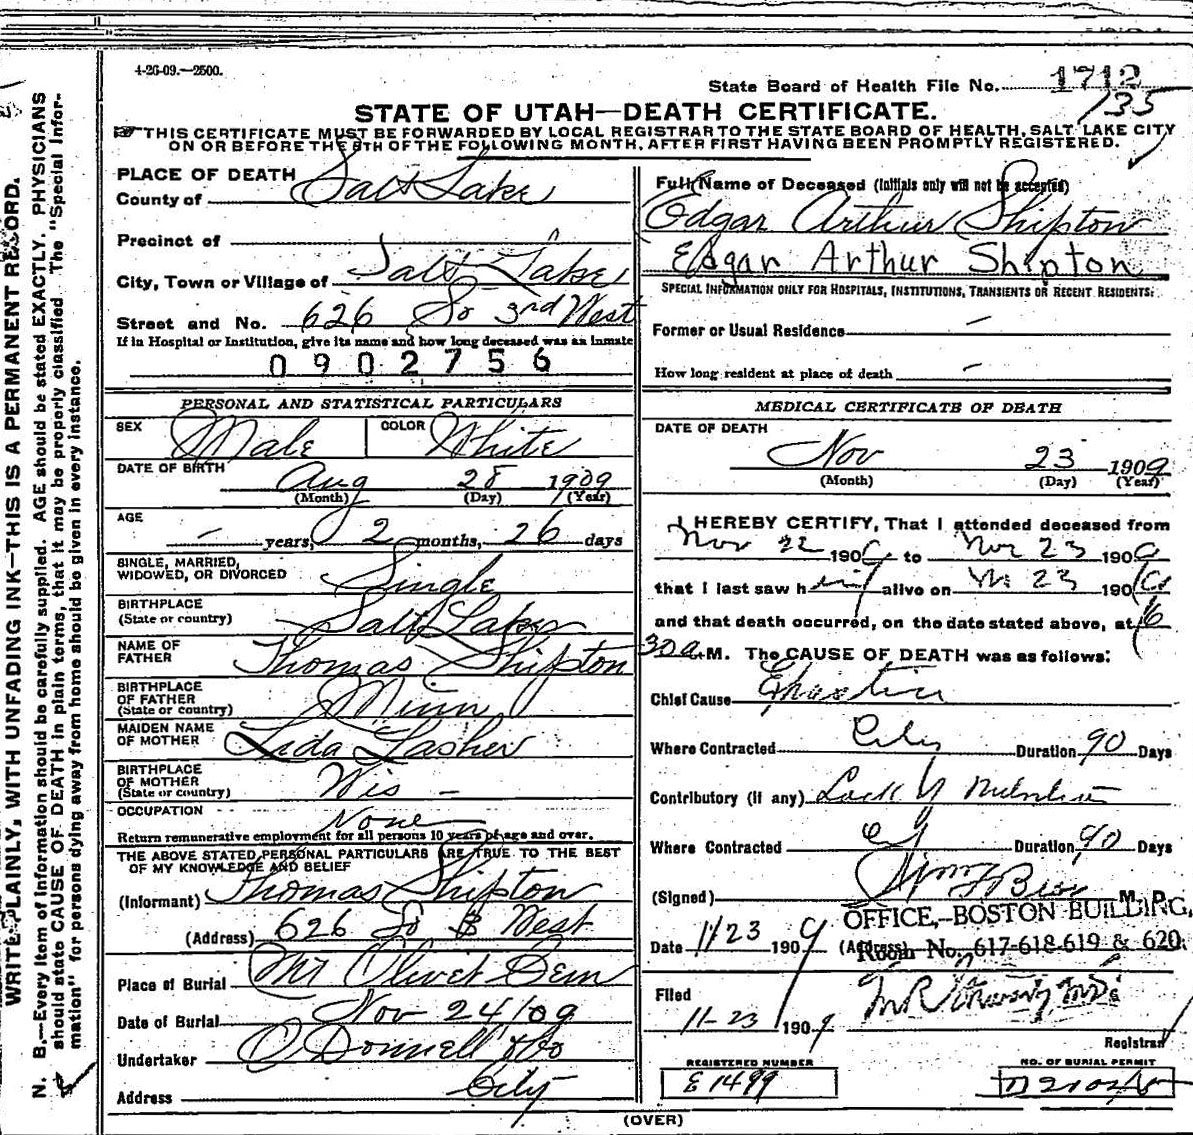 4-26-09.—2500.
State Board of Health File No. 1712
135
STATE OF UTAH—DEATH CERTIFICATE.
THIS CERTIFICATE MUST BE FORWARDED BY LOCAL REGISTRAR TO THE STATE BOARD OF HEALTH, SALT LAKE CITY
ON OR BEFORE THE 8TH OF THE FOLLOWING MONTH, AFTER FIRST HAVING BEEN PROMPTLY REGISTERED.
WRITE PLAINLY, WITH UNFADING INK—THIS IS A PERMANENT RECORD.
N. B.—Every item of information should be carefully supplied. AGE should be stated EXACTLY. PHYSICIANS
should state CAUSE OF DEATH in plain terms, that it may be properly classified. The "Special Infor-
mation" for persons dying away from home should be given in every instance.
PLACE OF DEATH
County of Salt Lake
Precinct of
City, Town or Village of Salt Lake
Street and No. 626 So 3rd West
If in Hospital or Institution, give its name and how long deceased was an inmate
0902756
PERSONAL AND STATISTICAL PARTICULARS
SEX Male COLOR White
DATE OF BIRTH Aug 28 1909
(Month) (Day) (Year)
AGE — years, 2 months, 26 days
SINGLE, MARRIED,
WIDOWED, OR DIVORCED Single
BIRTHPLACE
(State or country) Salt Lake
NAME OF
FATHER Thomas Shipton
BIRTHPLACE
OF FATHER
(State or country) Minn
MAIDEN NAME
OF MOTHER Lida Lasher
BIRTHPLACE
OF MOTHER
(State or country) Wis —
OCCUPATION None
Return remunerative employment for all persons 10 years of age and over.
THE ABOVE STATED PERSONAL PARTICULARS ARE TRUE TO THE BEST
OF MY KNOWLEDGE AND BELIEF
(Informant) Thomas Shipton
(Address) 626 So 3 West
Place of Burial Mt Olivet Cem
Date of Burial Nov 24/09
Undertaker O'Donnell & Co
Address City
Full Name of Deceased (Initials only will not be accepted)
Edgar Arthur Shipton
Edgar Arthur Shipton
SPECIAL INFORMATION ONLY FOR HOSPITALS, INSTITUTIONS, TRANSIENTS OR RECENT RESIDENTS:
Former or Usual Residence —
How long resident at place of death —
MEDICAL CERTIFICATE OF DEATH
DATE OF DEATH
Nov 23 1909
(Month) (Day) (Year)
I HEREBY CERTIFY, That I attended deceased from
Nov 22 1909 to Nov 23 1909
that I last saw him alive on 23 1909
and that death occurred, on the date stated above, at 6
30 a. M. The CAUSE OF DEATH was as follows:
Chief Cause
Where Contracted City Duration 90 Days
Contributory (if any) Lack of Nutrition
Where Contracted Duration 90 Days
(Signed) M. D.
OFFICE,-BOSTON BUILDING,
Date 11 23 1909 (Address) Room No. 617-618-619 & 620.
Filed
11-23 1909
Registrar
REGISTERED NUMBER
E1499
NO. OF BURIAL PERMIT
(OVER)